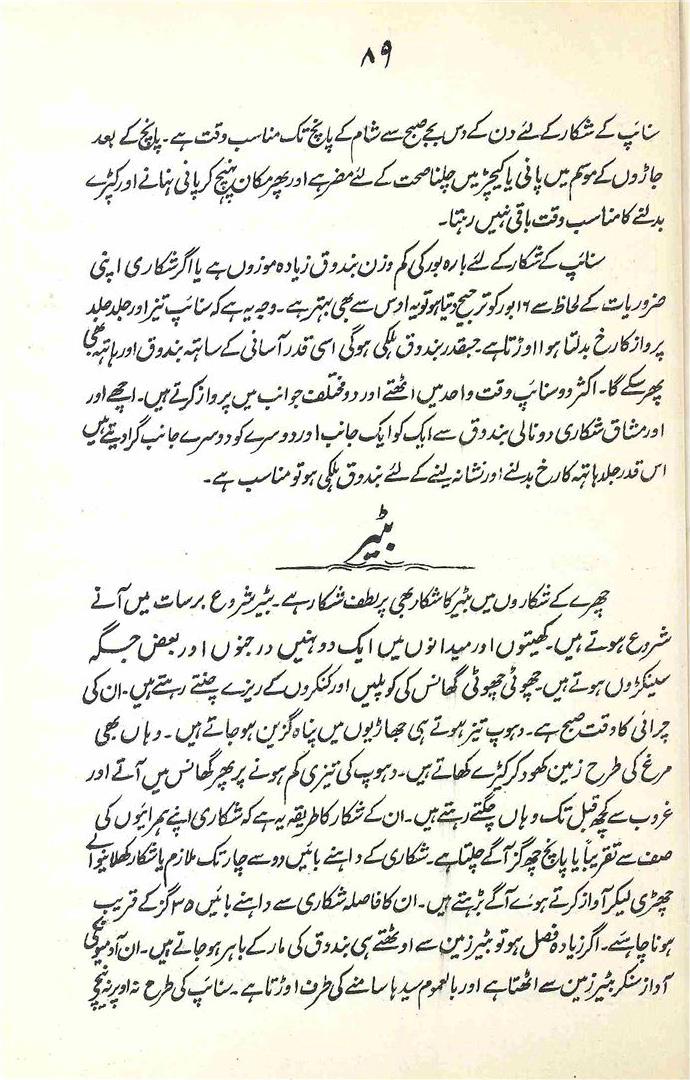 ۸۹
سنائپ کے شکار کے لئے دن کے دس بجے صبح سے شام کے پانچ تک مناسب وقت ہے۔ پانچ کے بعد
جاڑوں کے موسم میں پانی یا کیچڑ میں چلنا صحت کے لئے مضر ہے اور پھر مکان پہنچ کر پانی نہانے اور کپڑے
بدلنے کا مناسب وقت باقی نہیں رہتا۔
سنائپ کے شکار کے لئے بارہ بور کی کم وزن بندوق زیادہ موزوں ہے یا اگر شکاری اپنی
ضروریات کے لحاظ سے ۱۶ بور کو ترجیح دیتا ہو تو یہ اوس سے بھی بہتر ہے۔ وجہ یہ ہے کہ سنائپ تیز اور جلد جلد
پرواز کا رخ بدلتا ہوا اوڑتا ہے۔ جسقدر بندوق ہلکی ہوگی اسی قدر آسانی کے ساتہہ بندوق اور ہاتہہ بھی
پھر سکے گا۔ اکثر دو سنائپ وقت واحد میں اٹھتے اور دو مختلف جوانب میں پرواز کرتے ہیں۔ اچھے اور
اور مشاق شکاری دو نالی بندوق سے ایک کو ایک جانب اور دوسرے کو دوسرے جانب گرا دیتے ہیں
اس قدر جلد ہاتہہ کا رخ بدلنے اور نشانہ لینے کے لئے بندوق ہلکی ہو تو مناسب ہے۔
بٹیر
چھرے کے شکاروں میں بٹیر کا شکار بھی پر لطف شکار ہے۔ بٹیر شروع برسات میں آنے
شروع ہوتے ہیں۔ کھیتوں اور میدانوں میں ایک دو نہیں درجنوں اور بعض جگہ
سینکڑوں ہوتے ہیں۔ چھوٹی چھوٹی گھانس کی کوپلیں اور کنکروں کے ریزے چنتے رہتے ہیں۔ ان کی
چرائی کا وقت صبح ہے۔ دہوپ تیز ہوتے ہی جھاڑیوں میں پناہ گزین ہو جاتے ہیں۔ وہاں بھی
مرغ کی طرح زمین کھود کر کیڑے کھاتے ہیں۔ دہوپ کی تیزی کم ہونے پر پھر گھانس میں آتے اور
غروب سے کچھ قبل تک وہاں چگتے رہتے ہیں۔ ان کے شکار کا طریقہ یہ ہے کہ شکاری اپنے ہمرائیوں کی
صف سے تقریباً یا پانچ چھ گز آگے چلتا ہے۔ شکاری کے داہنے بائیں دو سے چار تک ملازم یا شکار کھلانیوالے
چھڑی لیکر آواز کرتے ہوئے آگے بڑہتے ہیں۔ ان کا فاصلہ شکاری سے داہنے بائیں ۳۵ گز کے قریب
ہونا چاہئے۔ اگر زیادہ فصل ہو تو بٹیر زمین سے اوٹھتے ہی بندوق کی مار کے باہر ہو جاتے ہیں۔ ان آدمیونکی
آواز سنکر بٹیر زمین سے اٹھتا ہے اور بالعموم سیدہا سامنے کی طرف اوڑتا ہے۔ سنائپ کی طرح نہ اوپر نہ نیچے